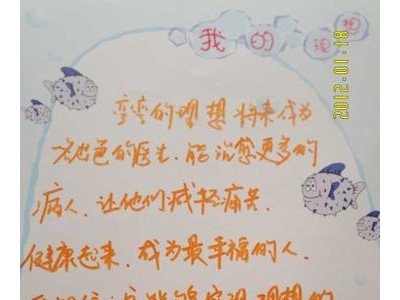 我的理想
2012.01.18
弯弯的理想将来成为
出色的医生.能治愈更多的
病人.让他们减轻痛苦.
健康起来.成为最幸福的人.